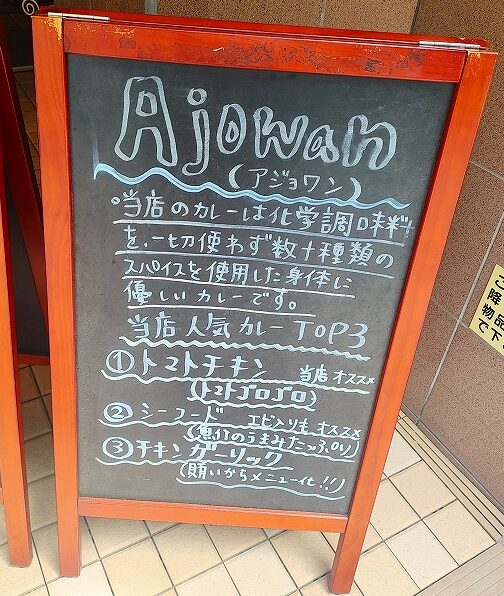 Ajowan
(アジョワン)
°当店のカレーは化学調味料
を、一切使わず数十種類の
スパイスを使用した身体に
優しいカレーです。
当店人気カレーTOP3
①トマトチキン 当店オススメ
(トマトゴロゴロ)
②シーフード エビ入りもオススメ
(魚介のうまみたっぷり)
③チキンガーリック
(賄いからメニュー化!!)
降
物品
で下